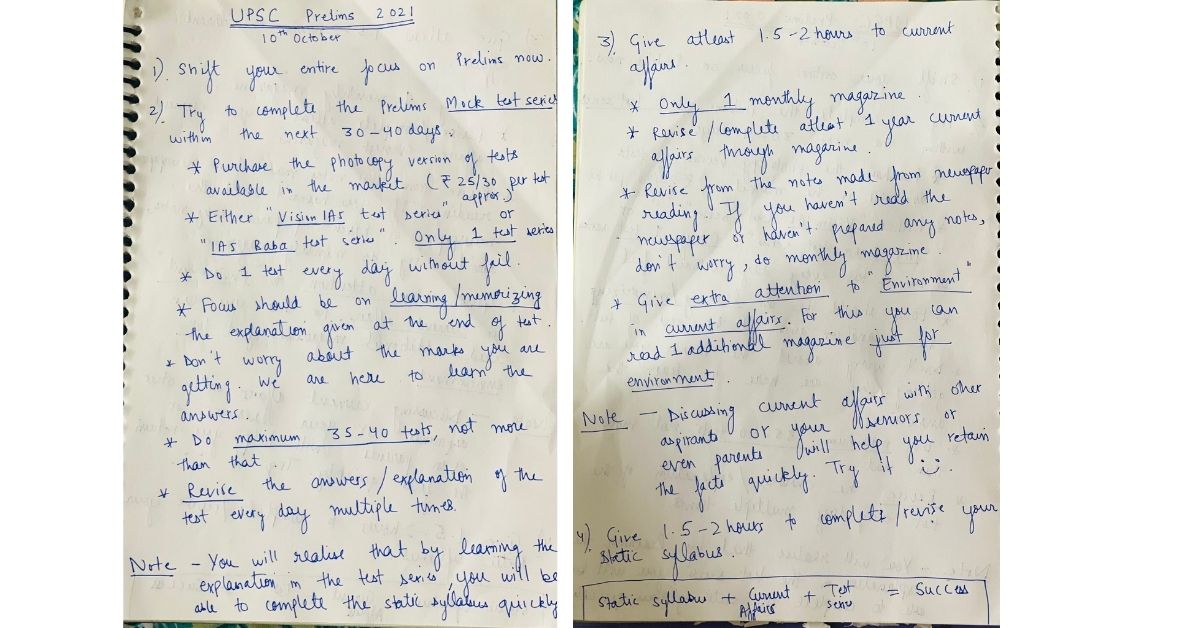 UPSC Prelims 2021
10th October
1). Shift your entire focus on Prelims now.
2). Try to complete the Prelims Mock test series
within the next 30-40 days.
* Purchase the photocopy version of tests
available in the market (₹ 25/30 per test
approx)
* Either "Vision IAS test series" or
"IAS Baba test series". Only 1 test series
* Do 1 test every day without fail.
* Focus should be on learning/memorizing
the explanation given at the end of test.
* Don't worry about the marks you are
getting. We are here to learn the
answers.
* Do maximum 35-40 tests, not more
than that.
* Revise the answers/explanation of the
test every day multiple times.
Note - You will realise that by learning the
explanation in the test series, you will be
able to complete the static syllabus quickly
3). Give atleast 1.5-2 hours to current
affairs.
* Only 1 monthly magazine.
* Revise/Complete atleast 1 year current
affairs through magazine.
* Revise from the notes made from newspaper
reading. If you haven't read the
newspaper or haven't prepared any notes,
don't worry, do monthly magazine.
* Give extra attention to "Environment"
in current affairs. For this you can
read 1 additional magazine just for
environment.
Note - Discussing current affairs with other
aspirants or your seniors, or
even parents will help you retain
the facts quickly. Try it
4). Give 1.5-2 hours to complete/revise your
static syllabus.
Static syllabus + Current Affairs + Test series = Success